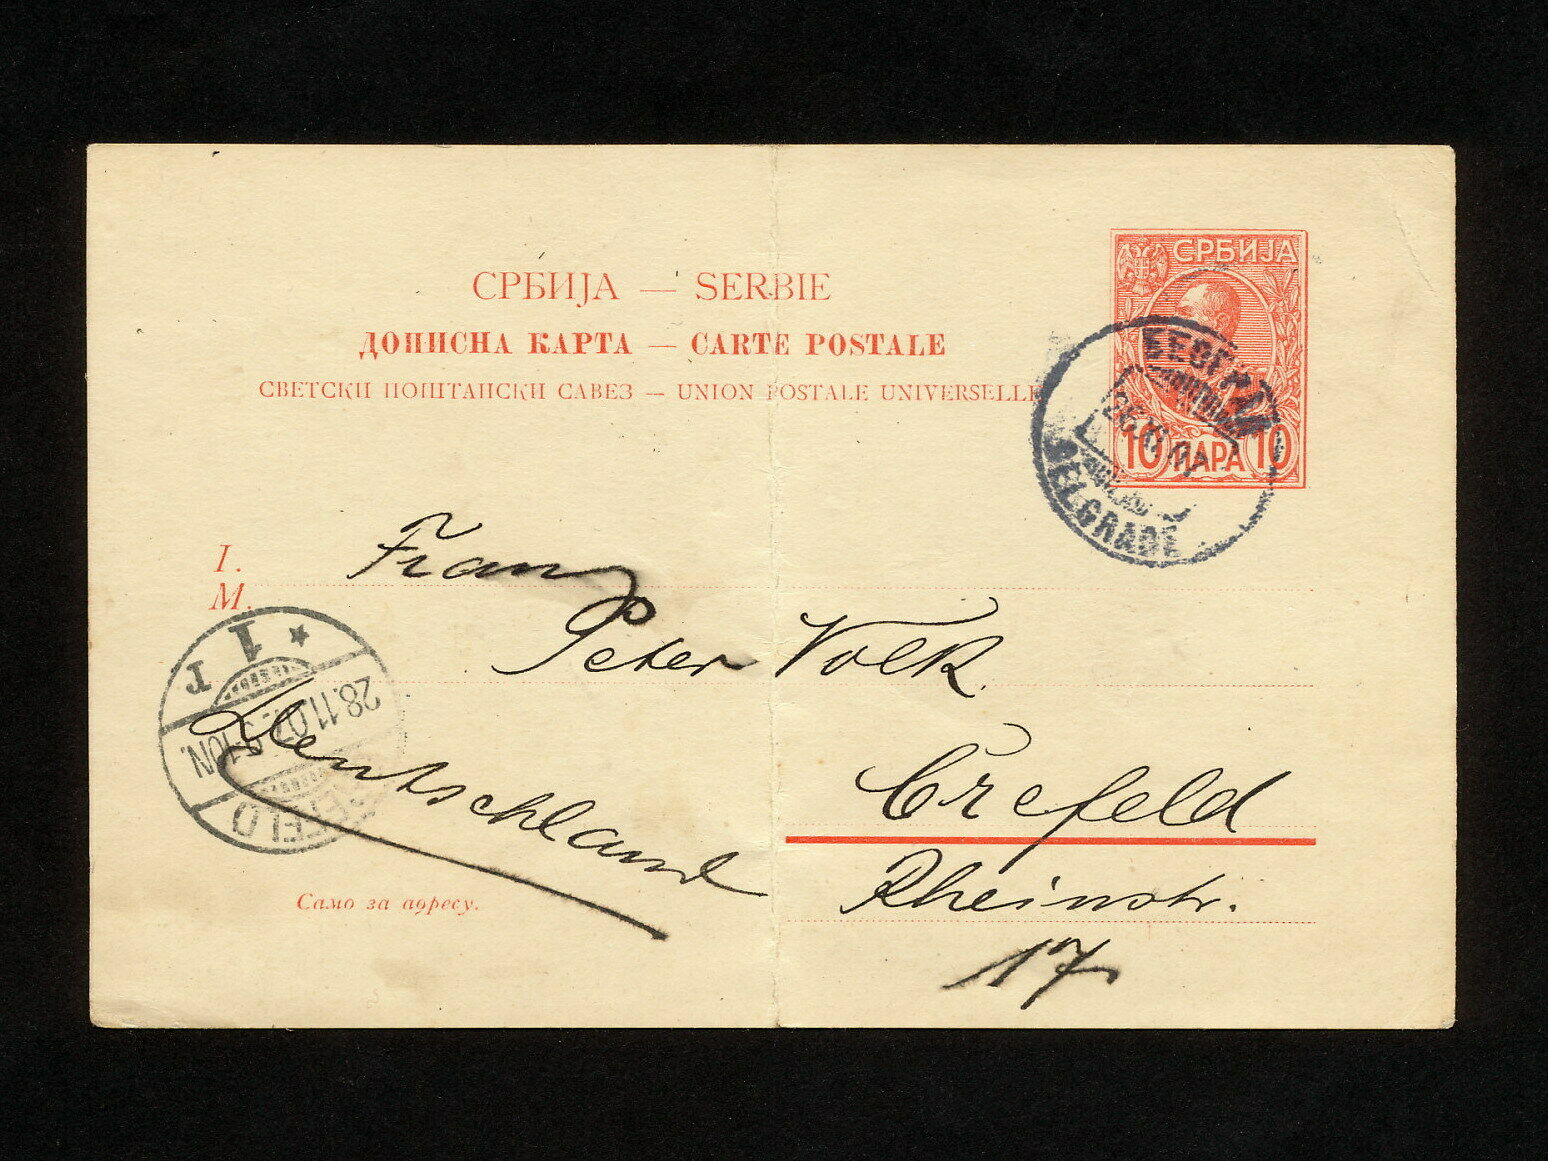 СРБИЈА — SERBIE
ДОПИСНА КАРТА — CARTE POSTALE
СВЕТСКИ ПОШТАНСКИ САВЕЗ — UNION POSTALE UNIVERSELLE
СРБИЈА
10 ПАРА 10
БЕОГРАД
26.XI.07
BELGRADE
I.
M.
Franz
Peter Volk.
Crefeld
Rheinstr.
17
Deutschland
Само за адресу.
* 1 r
28.11.07